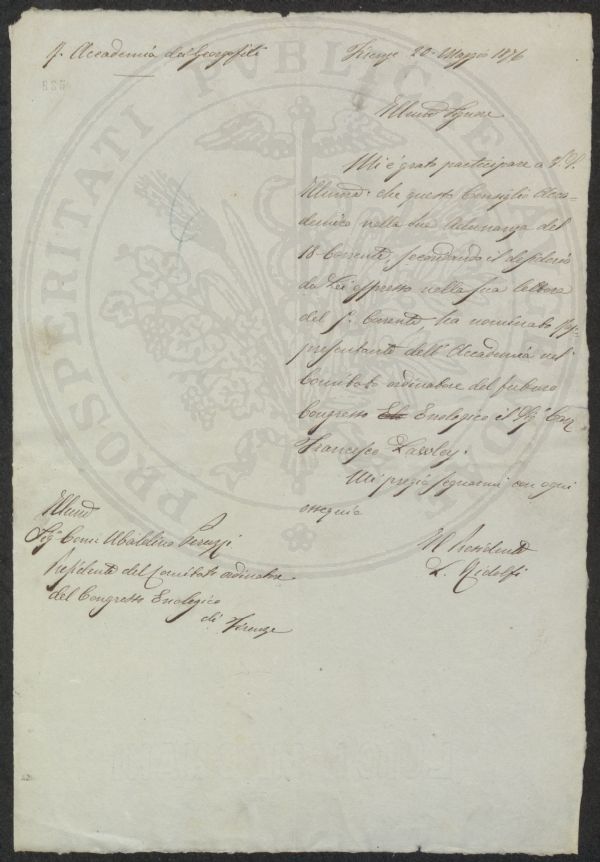 R. Accademia dei Georgofili
Firenze 20 Maggio 1876
Illmo Signore
Mi è grato partecipare a V.S.
Illma che questo Consiglio Acca-
demico nella sua Adunanza del
18 Corrente, secondando il desiderio
da Lei espresso nella sua lettera
del Corrente, ha nominato Rap-
presentante dell'Accademia nel
Comitato ordinatore del futuro
Congresso Enologico il Sigr Cav
Francesco Lawley.
Mi pregio segnarmi con ogni
ossequio
Il Presidente
L. Ridolfi
Illmo
Sigr Comm Ubaldino Peruzzi
Presidente del Comitato ordinatore
del Congresso Enologico
di Firenze
PROSPERITATI PUBLICAE